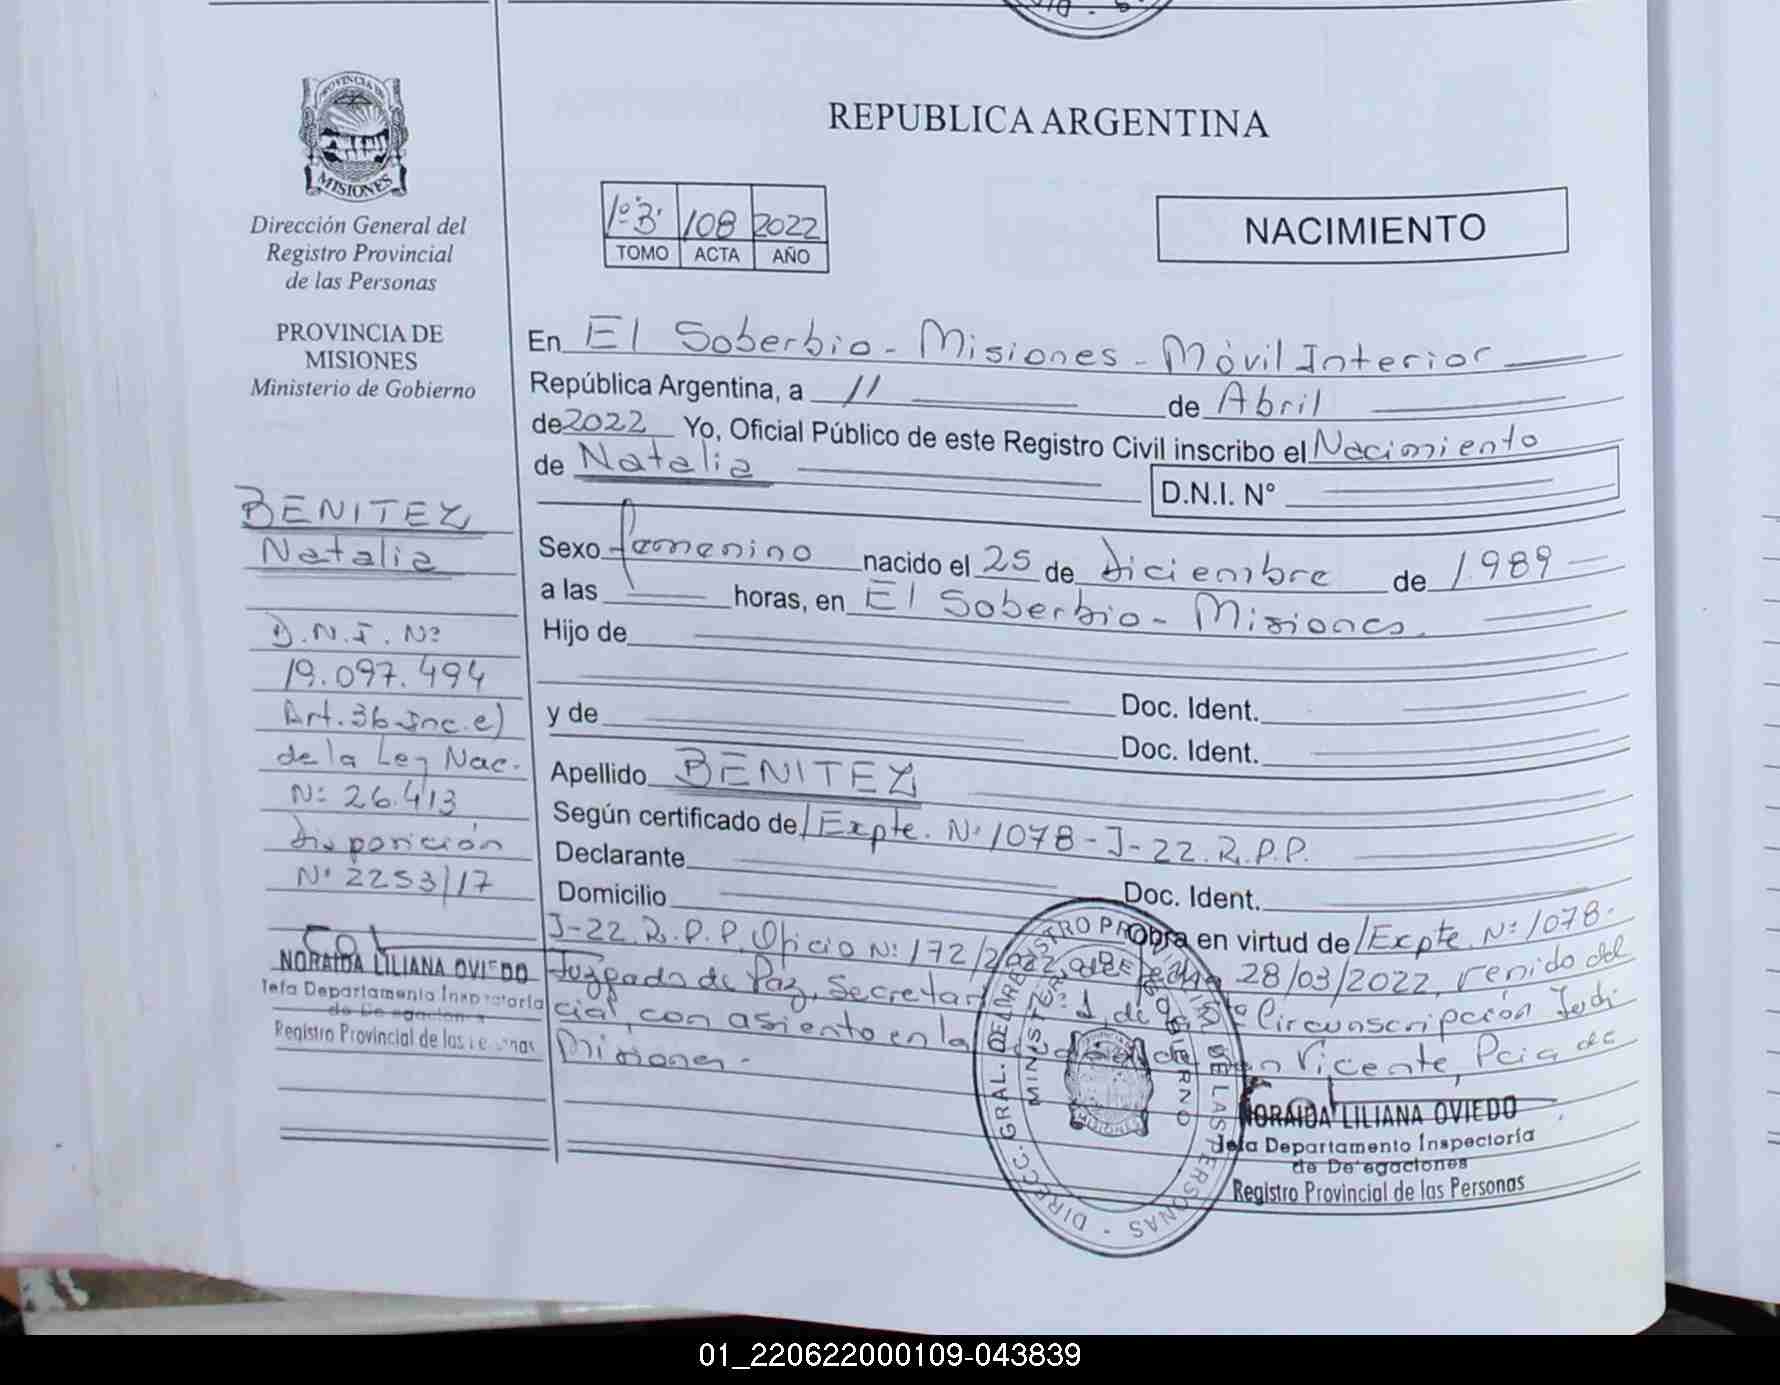 PROVINCIA DE
MISIONES
Dirección General del
Registro Provincial
de las Personas
PROVINCIA DE
MISIONES
Ministerio de Gobierno
BENITEZ
Natalia
D.N.I. Nº
19.097.494
Art. 36 Inc. e)
de la Ley Nac.
Nº 26.413
Disposición
Nº 2253/17
NORAIDA LILIANA OVIEDO
Jefa Departamento Inspectoría
de Delegaciones
Registro Provincial de las Personas
REPUBLICA ARGENTINA
1º"B" 108 2022
TOMO ACTA AÑO
NACIMIENTO
En El Soberbio - Misiones - Móvil Interior
República Argentina, a 11 de Abril
de 2022 Yo, Oficial Público de este Registro Civil inscribo el Nacimiento
de Natalia D.N.I. Nº
Sexo femenino nacido el 25 de diciembre de 1989
a las horas, en El Soberbio - Misiones.
Hijo de
Doc. Ident.
y de
Doc. Ident.
Apellido BENITEZ
Según certificado de/ Expte. Nº 1078-J-22.R.P.P.
Declarante
Domicilio Doc. Ident.
Obra en virtud de/ Expte. Nº 1078-
J-22.R.P.P. Oficio Nº 172/2022, de fecha 28/03/2022, venido del
Juzgado de Paz, Secretaría Nº 1, de la Circunscripción Judi-
cial, con asiento en la ciudad de San Vicente, Pcia de
Misiones.-
DIRECC. GRAL. DEL REGISTRO PROVINCIAL DE LAS PERSONAS
MINISTERIO DE GOBIERNO
NORAIDA LILIANA OVIEDO
Jefa Departamento Inspectoría
de Delegaciones
Registro Provincial de las Personas
01_220622000109-043839